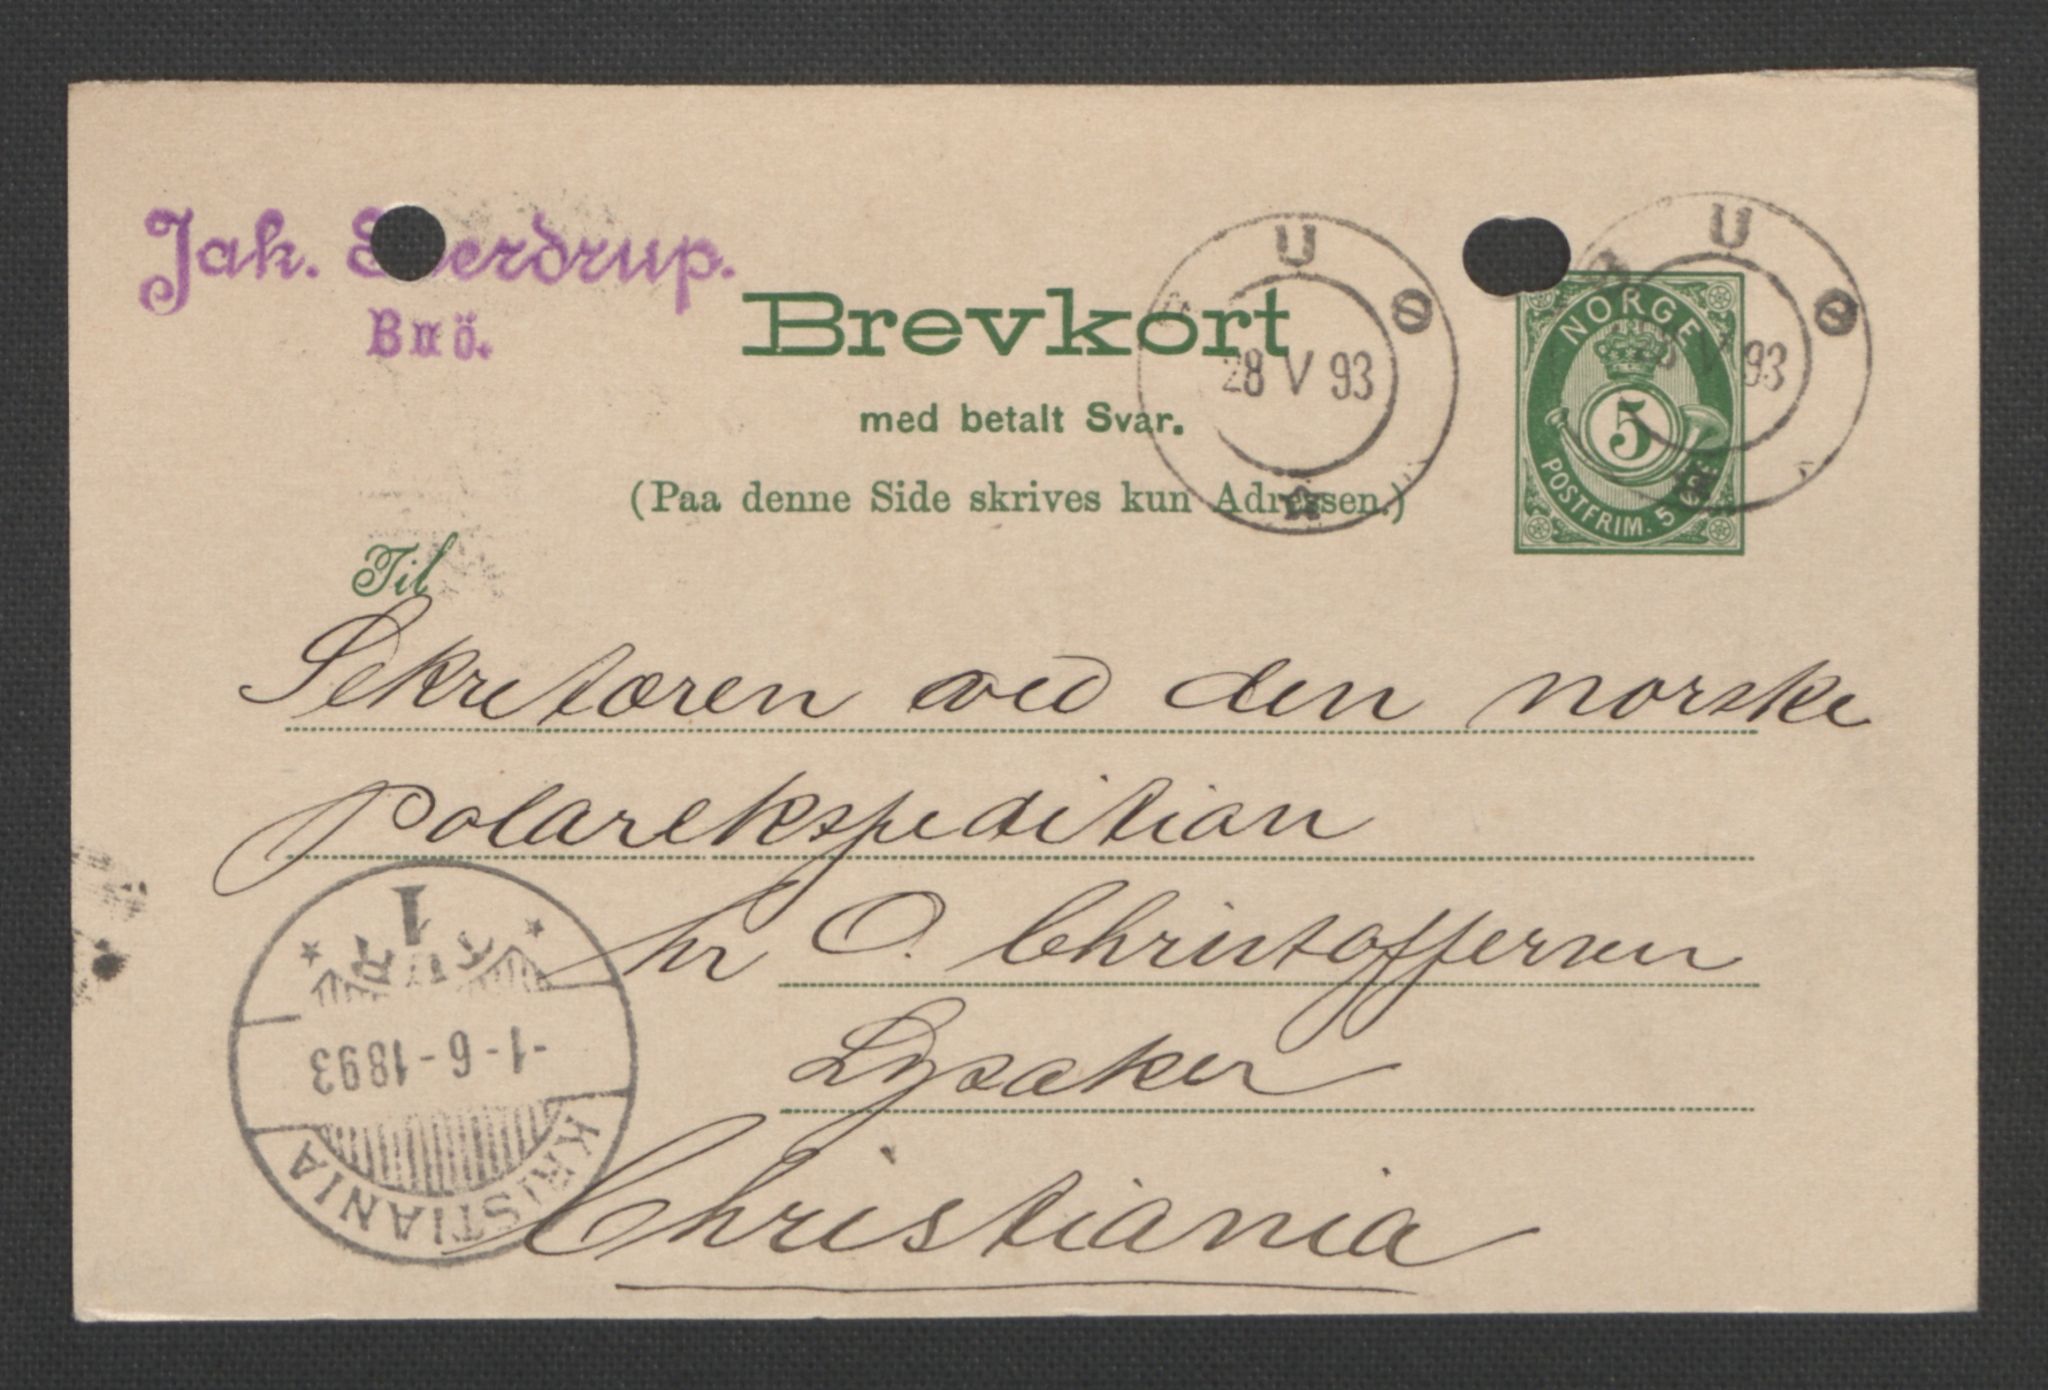 Jak. Sverdrup.
Buö.
Brevkort
med betalt Svar.
(Paa denne Side skrives kun Adressen.)
Til
U Ø
28 V 93
U Ø
93
NORGE
5
POSTFRIM. 5 ØRE
Sekretæren ved den norske
polarekspedition
hr O. Christoffersen
Lysaker
Christiania
KRISTIANIA
-1-6-1893
1